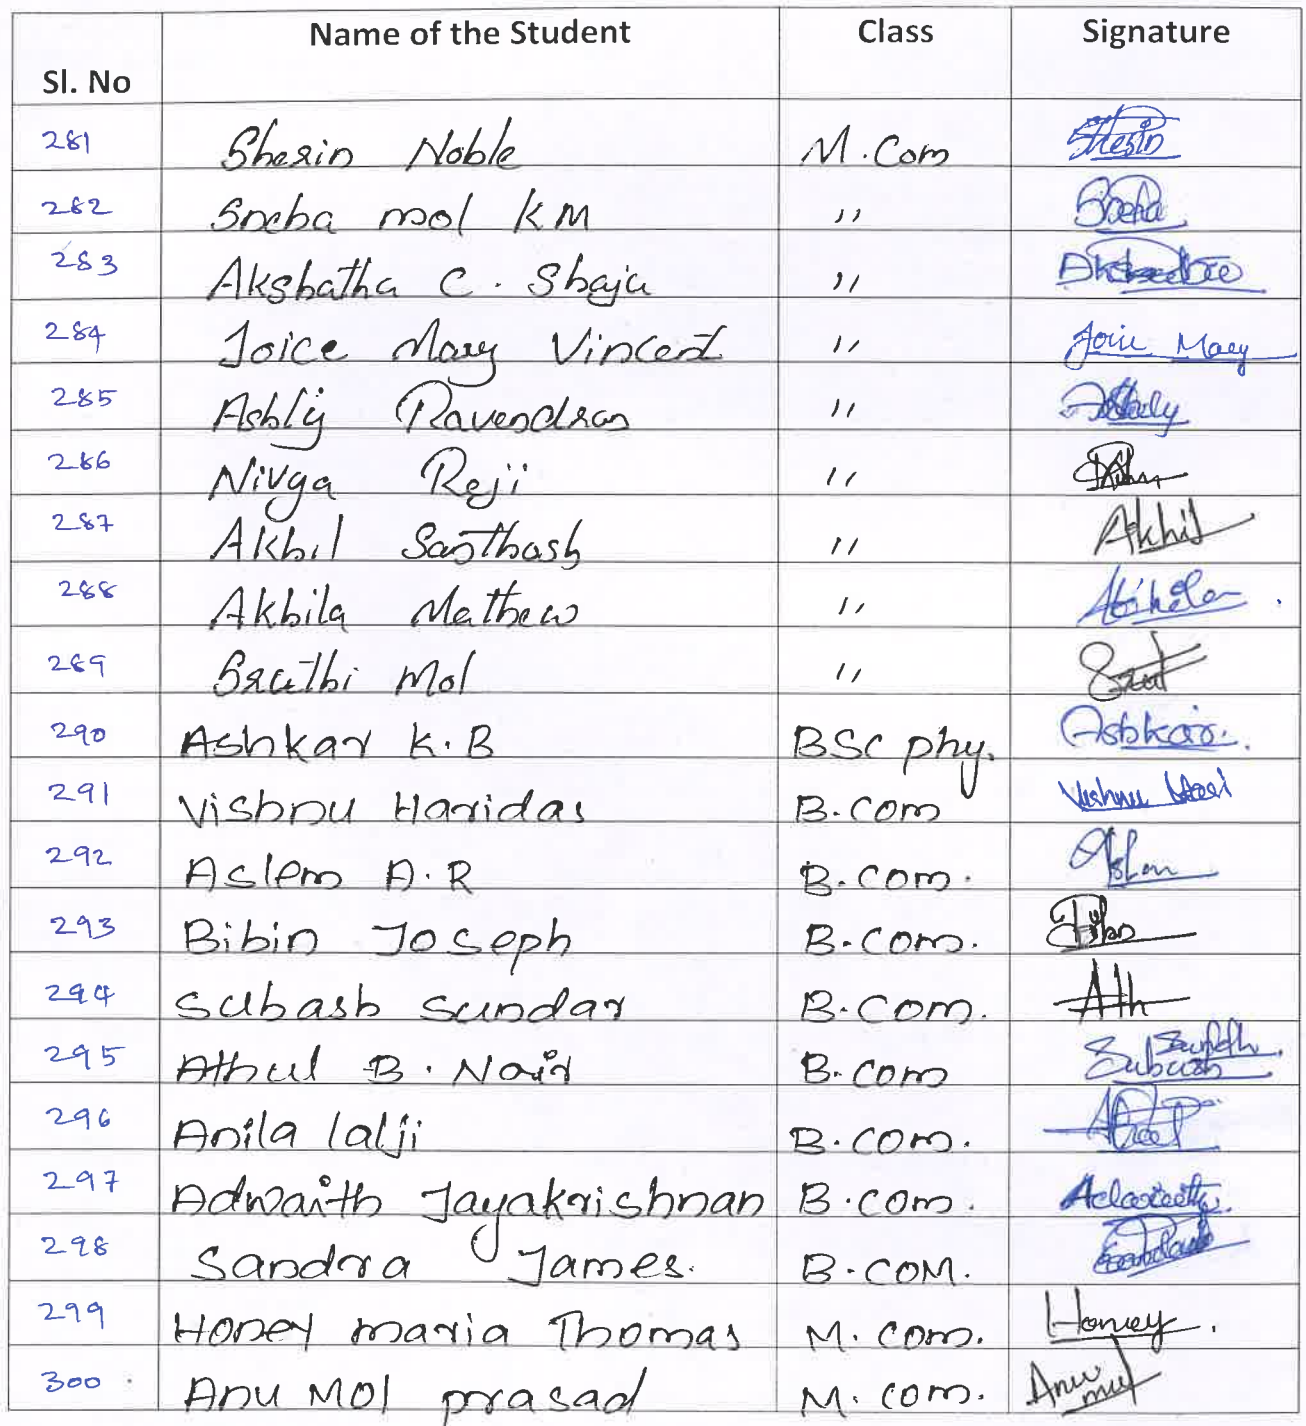 Name of the Student Class Signature
Sl. No
281 Sherin Noble M.Com Sherin
282 Sneha mol KM " Sneha
283 Akshatha C. Shaju "
284 Joice Mary Vincent " Joice Mary
285 Ashly Raveendran "  Ashly
286 Nivya Reji "
287 Akhil Santhosh " Akhil
288 Akhila Mathew " Akhila
289 Sruthi Mol "
290 Ashkar K.B BSc phy. Ashkar.
291 Vishnu Haridas B.Com Vishnu Hari
292 Aslem A.R B.com.
293 Bibin Joseph B.com.
294 Subash Sundar B.Com. Ath
295 Athul B. Nair B.com Subash
296 Anila lalji B.com.
297 Adwaith Jayakrishnan B.com. Adwaith
298 Sandra James. B.COM.
299 Honey maria Thomas M.com. Honey.
300 Anu Mol prasad M.com. Anu mol